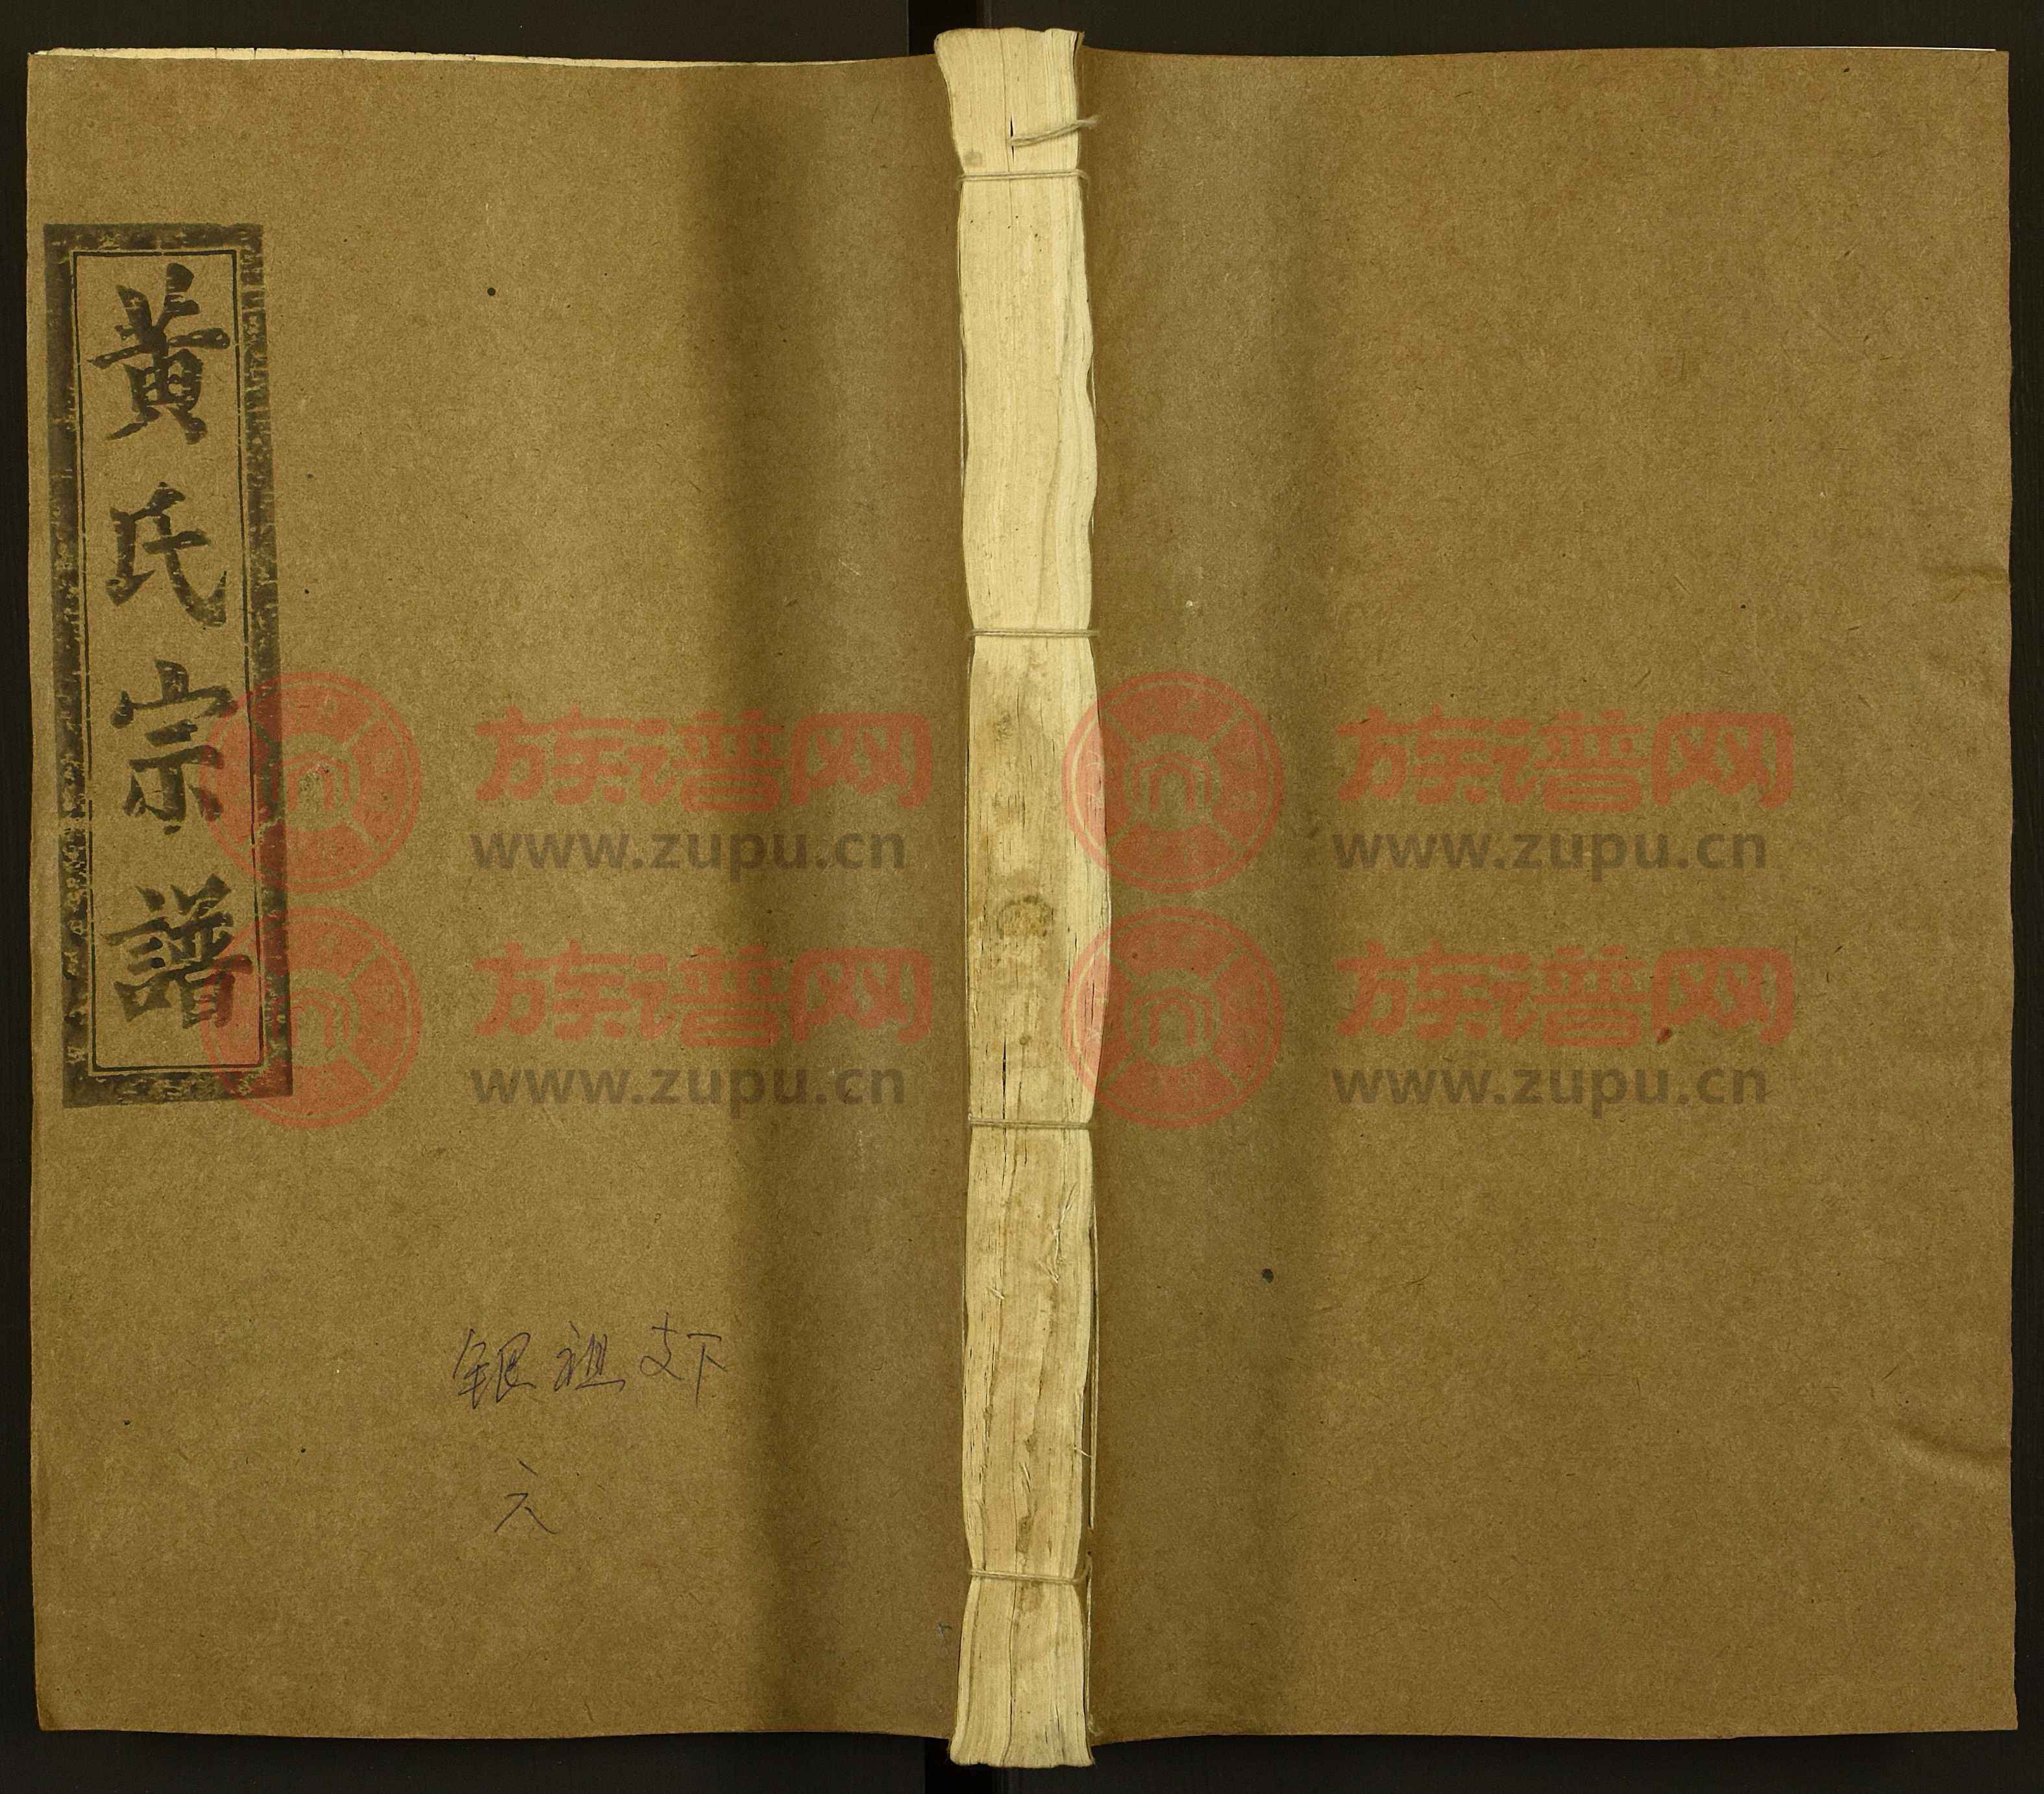 黄氏宗譜
族谱网 族谱网
www.zupu.cn www.zupu.cn
族谱网 族谱网
www.zupu.cn www.zupu.cn
银祖支下
六